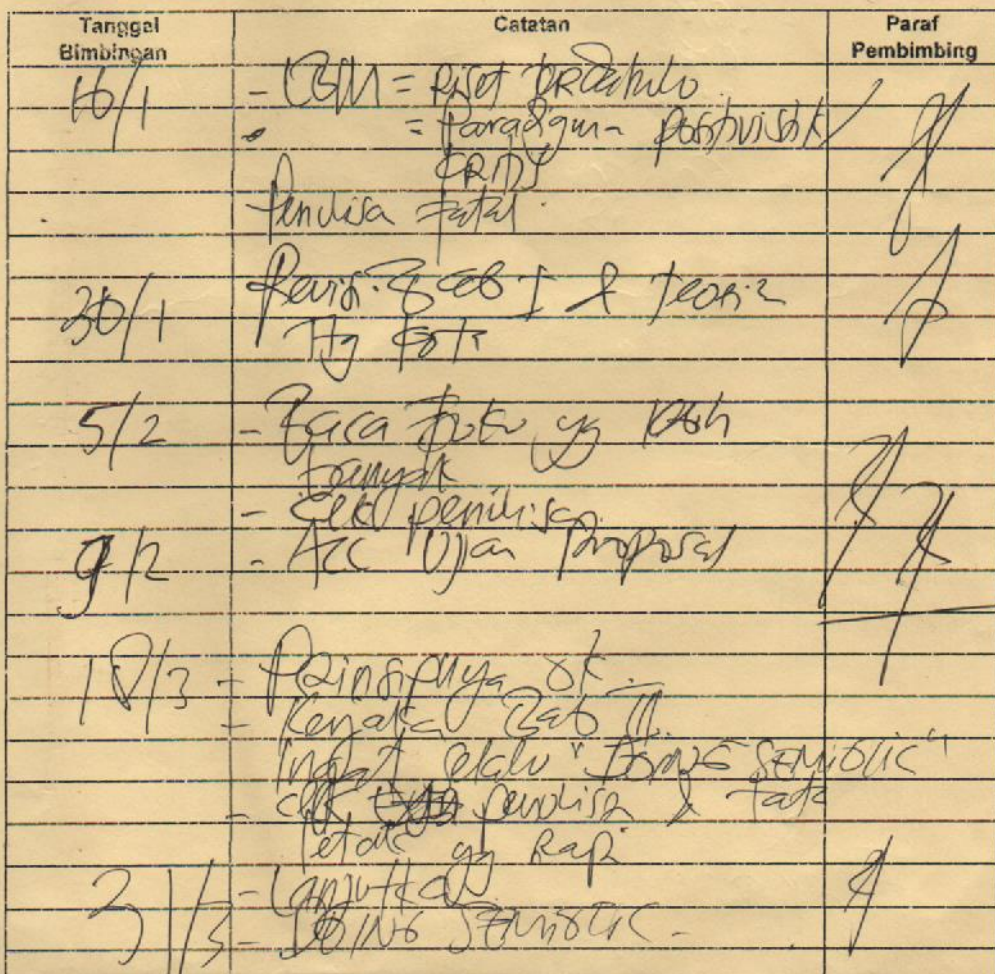 Tanggal Bimbingan Catatan Paraf Pembimbing
16/1 - = Riset
= Paradigma positivistik
Penulisa fatal.
30/1 Revisi Bab I & teori2
Ttg
5/2 - Baca Buku yg lebih
banyak
- Cek penulisa
9/2 - Acc Ujian Proposal
18/3 - Prinsipnya ok
- Kerjaka Bab II.
Ingat selalu "DOING SEMIOTIC"
- cek penulisa & tata
letak yg Rapi
31/3 - Lanjutkan
- DOING SEMIOTIC -